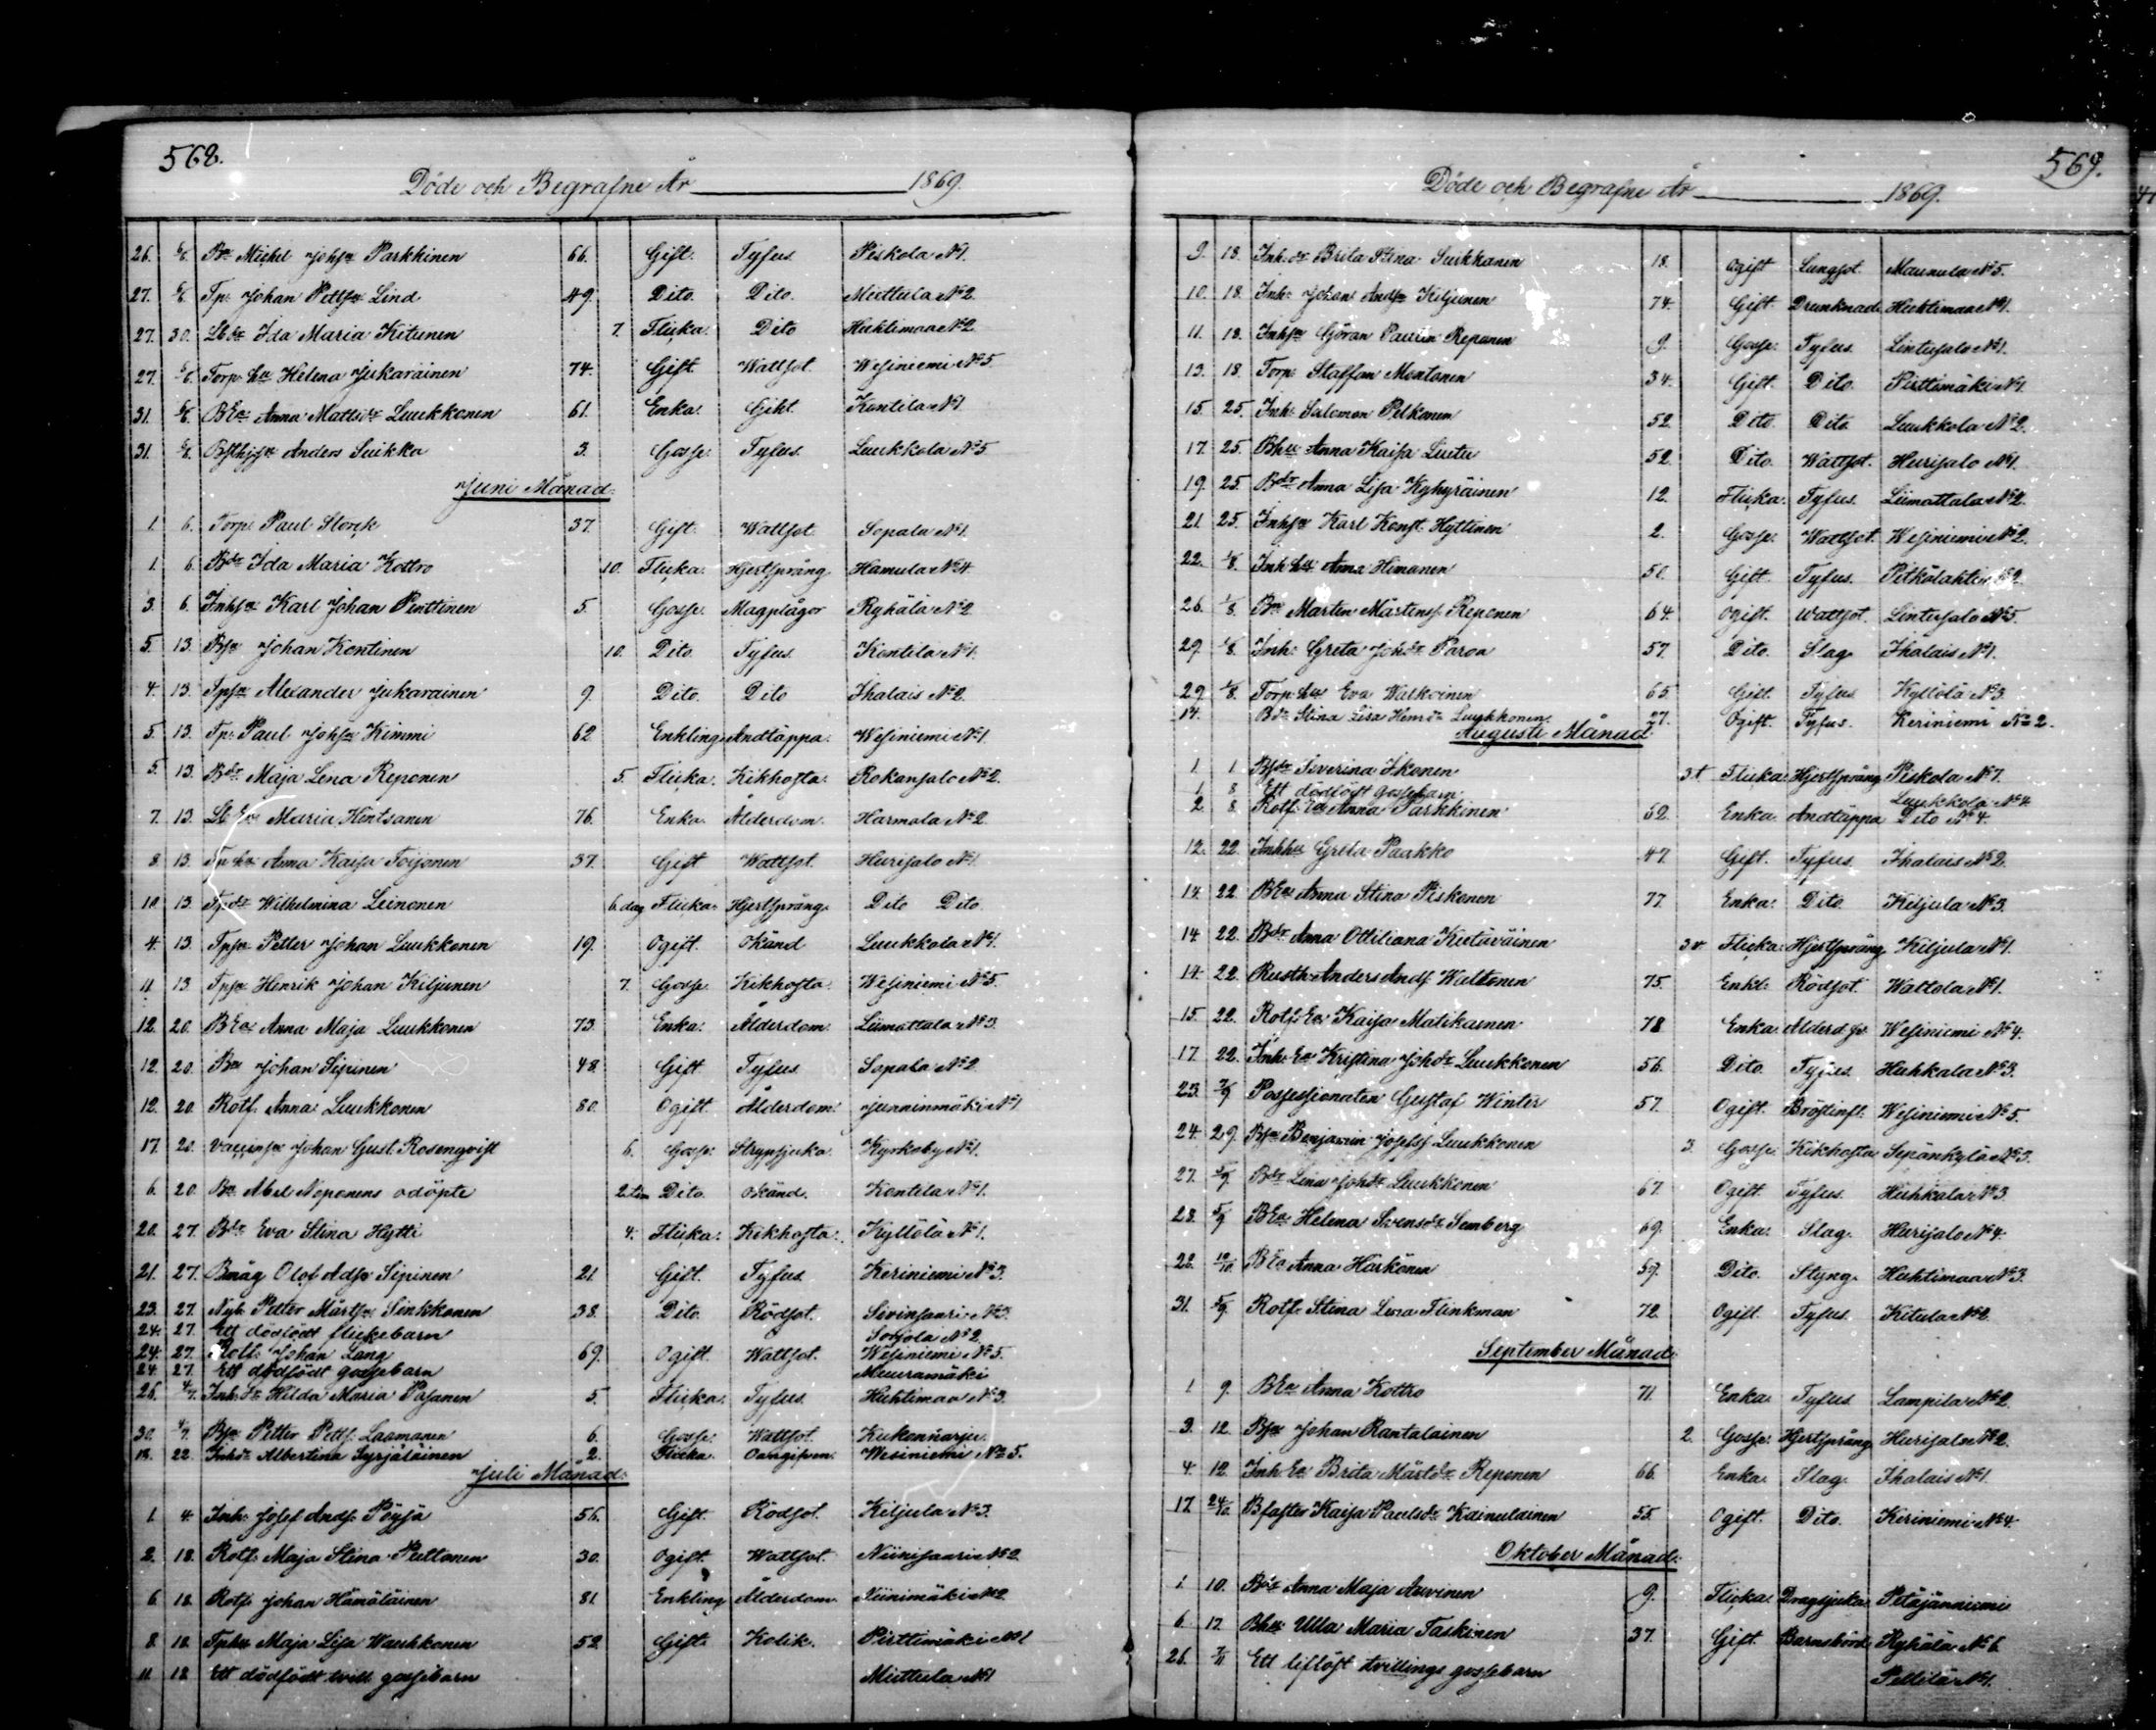 568.
Döde och Begrafne År 1869.
26. 6/6. Bn Michel Johsn Parkkinen 66. Gift. Tyfus Piskola No 1.
27. 6/6. Tp: Johan Pettsn Lind 49. Dito. Dito. Miettula No 2
27. 30. Lbdr Ida Maria Kitunen 7. Flicka. Dito Huhtimaa No 2
27. 6/6. Torp: hu Helena Jukaräinen 74. Gift. Wattsot. Wesiniemi No 5
31. 6/6. BEa Anna Mattsdr Luukkonen 61. Enka. Gikt. Kontila No 1
31. 6/6. Anders Suikka 3. Gosse. Tyfus. Luukkola No 5
Juni Månad.
1. 6. Torp: Paul Storck 37. Gift. Wattsot. Sopala No 1.
1. 6. Bdr Ida Maria Kottro 10. Flicka. Hjertsprång Hamula No 4.
3. 6. Inhsn Karl Johan Penttinen 5. Gosse. Magplågor Ryhälä No 2
5. 13. Bsn Johan Kontinen 10. Dito. Tyfus. Kontila No 1.
4. 13. Tpsn Alexander Jukarainen 9. Dito. Dito Ihalais No 2.
5. 13. Tp: Paul Johsn Kimmi 62 Enkling Andtäppa. Wesiniemi No 1.
5. 13. Bdr Maja Lena Reponen 5. Flicka. Kikhosta. Rokansalo No 2.
7. 13. Lb Ea Maria Hintsanen 76. Enka. Ålderdom. Harmala No 2.
8. 13. Tp hu Anna Kaisa Toijonen 37. Gift Wattsot. Hurisalo No 1.
10. 13. Tpdr Wilhelmina Leinonen 6. dag Flicka. Hjertsprång. Dito Dito
4. 13. Tpsn Petter Johan Luukkonen 19. Ogift. Okänd Luukkola No 1.
11. 13. Tpsn Henrik Johan Kiljunen 7. Gosse. Kikhosta. Wesiniemi No 5.
12. 20. BEa Anna Maja Luukkonen 73. Enka. Ålderdom. Liimattala No 3.
12. 20. Bn Johan Sipinen 48. Gift Tyfus Sopala No 2
12. 20. Rotf. Anna Luukkonen 80. Ogift. Ålderdom. Junninmäki No 1
17. 20. Johan Gust. Rosenqvist 6. Gosse. Strypsjuka. Kyrkoby No 1.
6. 20. Bn Abel Noponens odöpte 2. tim Dito. Okänd. Kontila No 1.
20. 27. Bdr Eva Stina Hytti 4. Flicka. Kikhosta. Kyllölä No 1.
21. 27. Bmåg Olof Adsn Sipinen 21. Gift. Tyfus. Keriniemi No 3.
23. 27. Nyb. Petter Mårtsn Sinkkonen 38. Dito. Rödsot. Sivinsaari No 3.
24. 27. Ett dödfödt flickebarn Sorjola No 2.
24. 27. Rotf. Johan Lang 69. Ogift. Wattsot. Wesiniemi No 5.
24. 27. Ett dödfödt gossebarn Muuramäki
26. 4/7. Inh. dr Hilda Maria Pasanen 5. Flicka. Tyfus. Huhtimaa No 3.
30. 4/7. Bsn Petter Petts. Laamanen 6. Gosse. Wattsot. Kukonharju.
18. 22. Inhdr Albertina Syrjäläinen 2. Flicka. Oangifven. Wesiniemi No 5.
Juli Månad.
1. 4. Inh. Josef Ands. Pöyjä 56. Gift. Rödsot. Kiljula No 3.
2. 18. Rotf. Maja Stina Puttonen 30. Ogift. Wattsot. Niinisaari No 2
6. 18. Rotf. Johan Hämäläinen 81. Enkling Ålderdom. Niinimäki No 2
8. 18. Tphu Maja Lisa Wauhkonen 52. Gift. Kolik. Pirttimäki No 1
11. 18. Ett dödfödt tvill gossebarn Miettula No 1
569.
Döde och Begrafne År 1869.
9. 18. Inh. dr Brita Stina Suikkanen 18. Ogift Lungsot. Maunula No 5.
10. 18. Inh. Johan Andsn Kiljunen 74. Gift Drunknad. Huhtimaa No 1.
11. 18. Inhsn Göran Paulin Reponen 9. Gosse. Tyfus. Lintusalo No 1.
13. 18. Torp: Staffan Montonen 34. Gift. Dito. Pirttimäki No 1.
15. 25. Inh. Salomon Pelkonen 52. Dito. Dito Luukkola No 2.
17. 25. Bhu Anna Kaisa Liuttu 52. Dito. Wattsot. Hurisalo No 1.
19. 25. Bdr Anna Lisa Kyhyräinen 12. Flicka. Tyfus. Liimattala No 2.
21. 25. Inhsn Karl Konst. Hyttinen 2. Gosse. Wattsot. Wesiniemi No 2.
22. 1/8. Inh hu Anna Himanen 50. Gift. Tyfus. Pitkälahti No 2.
26. 1/8. Bn Martin Mårtens. Reponen 64. Ogift. Wattsot. Lintusalo No 5.
29. 1/8. Inh. Greta Johdr Paroa 57. Dito. Slag. Ihalais No 1.
29. 1/8. Torp. hu Eva Walkoinen 65 Gift. Tyfus Kyllölä No 3
14. Bdr Stina Lisa Henrdr Luukkonen. 27. Ogift. Tyfus. Keriniemi No 2.
Augusti Månad
1. 1. Bsdr Severina Ikonen 3 t Flicka. Hjertsprång. Piskola No 7.
1. 8. Ett dödfödt gossebarn. Luukkola No 4
2. 8. Rotf. Ea Anna Parkkinen 52. Enka. Andtäppa Dito No 4.
12. 22. Inhhu Greta Paakko 47. Gift. Tyfus. Ihalais No 2.
14. 22. BEa Anna Stina Piskonen 77. Enka. Dito. Kiljula No 3.
14 22. Bdr Anna Ottiliana Kietäväinen 3 v Flicka. Hjertsprång. Kiljula No 1.
14. 22. Rusth. Anders Ands. Waltonen 75. Enkl. Rödsot. Wattola No 1.
15. 22. Rotf. Ea Kaisa Matikainen 78 Enka. Wesiniemi No 4.
17. 22. Inh. Ea Kristina Johdr Luukkonen 56. Dito. Tyfus. Huhkala No 3.
23. 5/9 Possessionaten Gustaf Winter 57. Ogift. Bröstinfl. Wesiniemi No 5.
24. 29. Bsn Benjamin Josefs. Luukkonen 3. Gosse. Kikhosta. Sepänkylä No 3.
27. 5/9. Bdr Lena Johdr Luukkonen 67. Ogift. Tyfus. Huhkala No 3.
28. 5/9 BEa Helena Svensdr Semberg 69. Enka. Slag. Hurisalo No 4.
28. 10/10. BEa Anna Härkönen 59. Dito. Styng. Huhtimaa No 3.
31. 5/9. Rotf. Stina Lena Flinkman 72. Ogift. Tyfus. Kitula No 2.
September Månad.
1. 9. BEa Anna Kottro 71. Enka. Tyfus Lampila No 2.
3. 12. Bsn Johan Rantalainen 2. Gosse. Hjertsprång. Hurisalo No 2.
4. 12. Inh Ea Brita Mårtdr Reponen 66. Enka. Slag. Ihalais No 1.
17. 24/10. Bfaster Kaisa Paulsdr Kainulainen 55. Ogift. Dito. Keriniemi No 4.
Oktober Månad.
1. 10. Bdr Anna Maja Auvinen 9. Flicka. Dragsjuka. Petäjäniemi
6. 17. Bhu Ulla Maria Taskinen 37. Gift. Barnsbörd. Ryhälä No 6.
26. 7/11 Ett liflöst tvillings gossebarn Pellilä No 1.